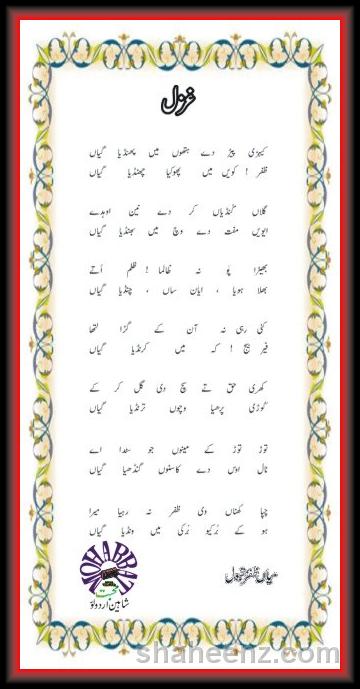 غزل
کیہڑی پیڑ دے ہتھوں میں پھنڈیا گیاں
ظفر ! کویں میں پھوکیا چھنڈیا گیاں
گلاں گنڈیاں کر دے نین اوہدے
ایویں مفت دے وچ میں بھنڈیا گیاں
بھیڑا پو نہ ظالما ! ظلم اُتے
بھلا ہویا ، ایان ساں ، چنڈیا گیاں
کئی رہی نہ آن کے گڑا لتھا
فیر بیج ! کہ میں کرنڈیا گیاں
کھری حق تے سچ دی گل کر کے
گوڑی پرھیا وچوں ترنڈیا گیاں
توڑ توڑ کے مینوں جو سٹدا اے
نال اوس دے کاسنوں گنڈھیا گیاں
چپا گھناں وی ظفر نہ رہیا میرا
ہو کے بُرکیو بُرکی میں ونڈیا گیاں
میاں ظفر مقبول
MOHABBAT
محبت
شاہین اردولو
shaheenz.com